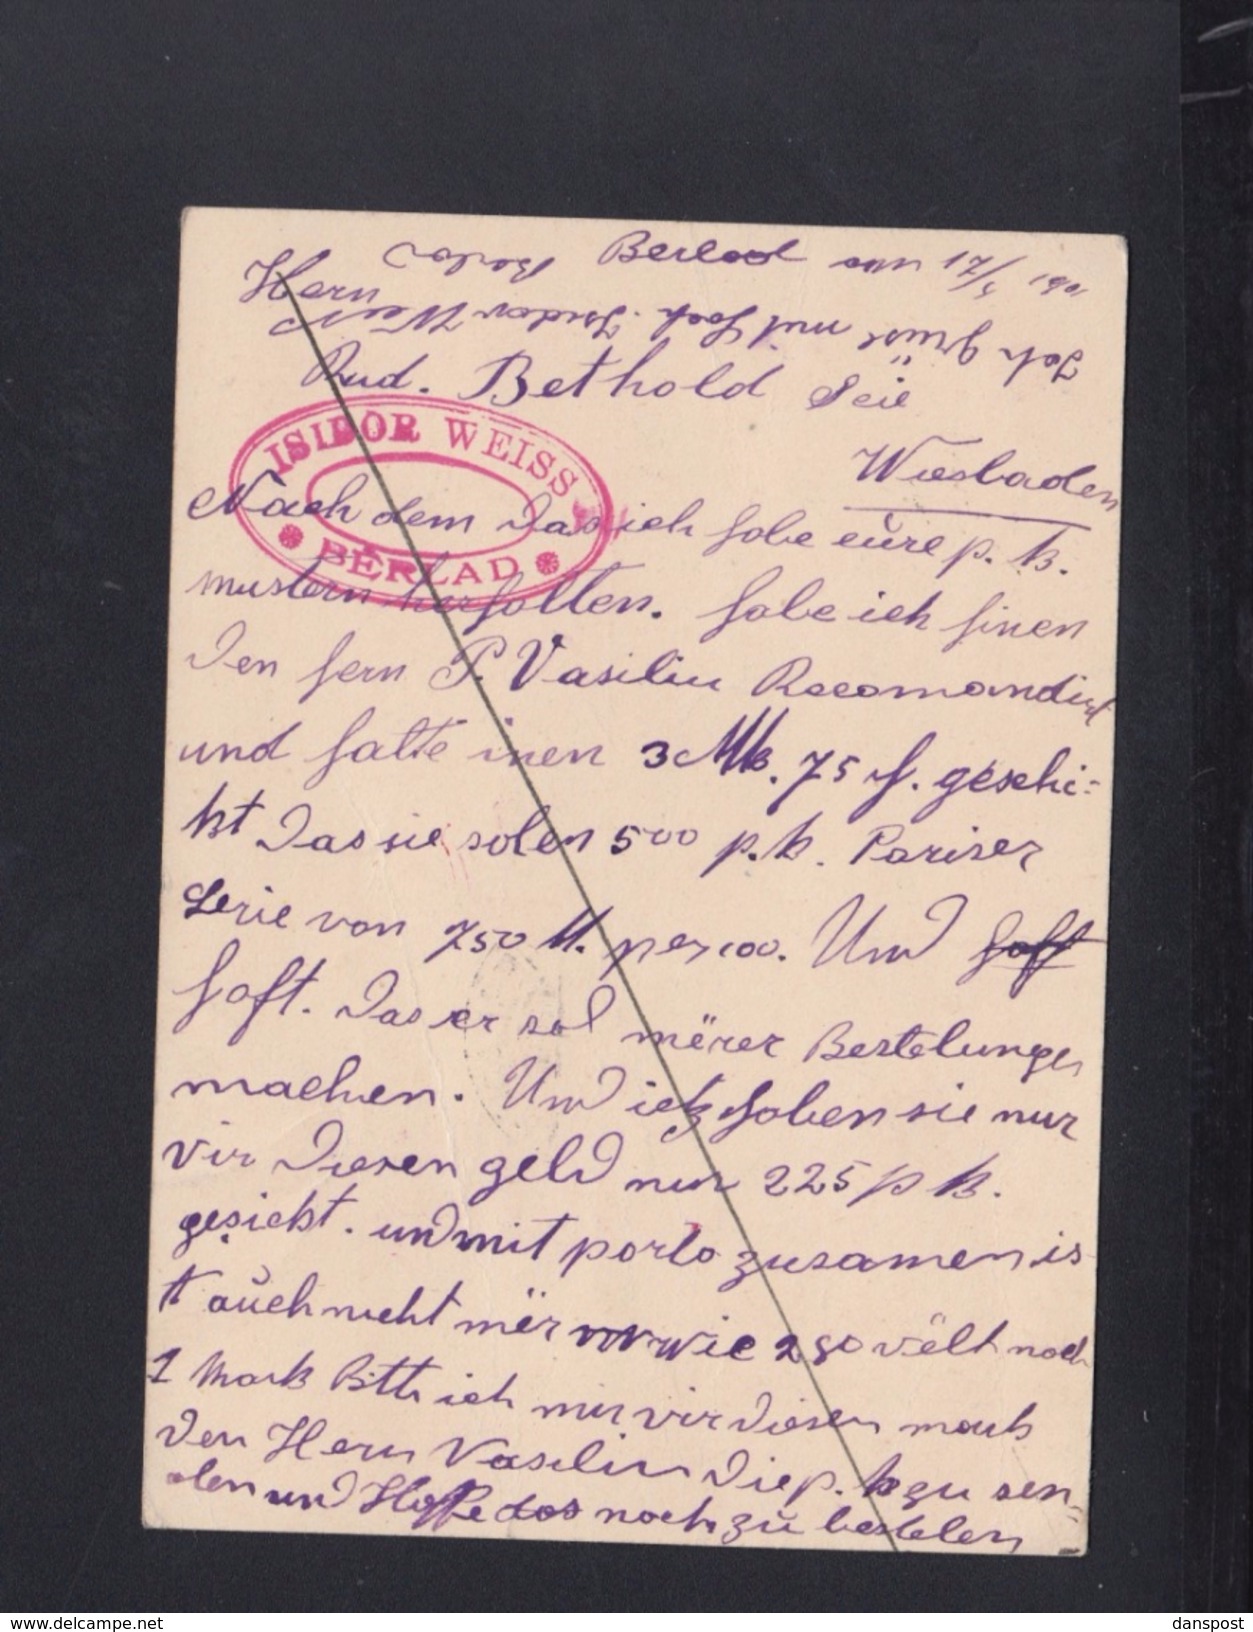 Berlad am 17/5 190
Herrn
Rud. Bethold
Wiesbaden
ISIDOR WEISS
BERLAD
Nach dem das ich habe eüre p. k.
mustern herhalten. habe ich hinen
den hern P. Vasiliu Recomandirt
und hatte inen 3 Mk. 75 f. geschi-
kt das sie solen 500 p. k. Pariser
Serie von 750 M. per 100. Und
hoft. das er sol mërer Bestelungen
machen. Und ietz haben sie nur
vir diesen geld nur 225 p k.
gesickt. und mit porto zusamen is
t auch nicht mër wie 250 vëlt noch
1 Mark Bitte ich mir vir diesen mark
den Hern Vasiliu die p. k zu sen-
den und Hoffe das noch zu bestelen
Ich grüse mit Hoch. Isidor Weiss
Berlad
delcampe.net
danspost